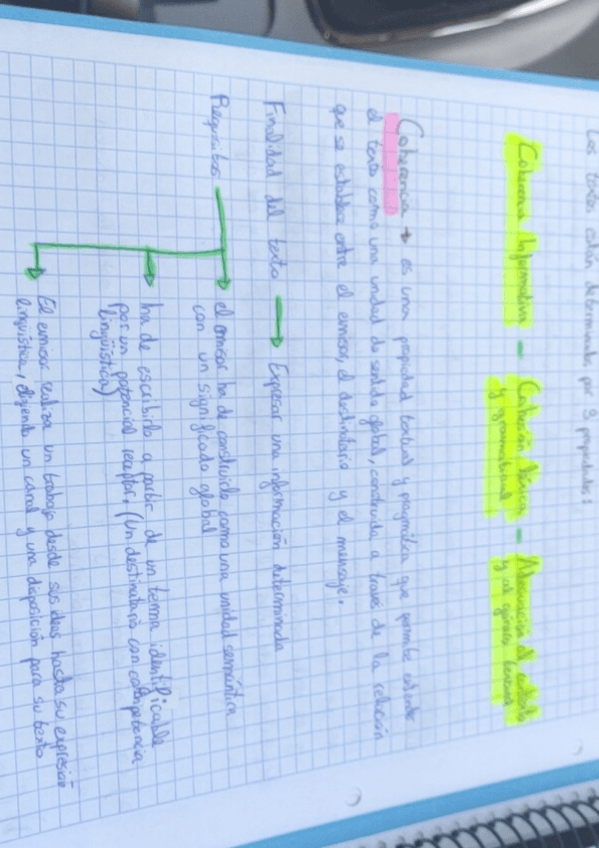 Los textos están determinados por 3 propiedades:
Coherencia Informativa - Cohesión léxica - Adecuación al contexto
y gramatical y al género textual
Coherencia → es una propiedad textual y pragmática que permite entender
el texto como una unidad de sentido global, construida a través de la relación
que se establece entre el emisor, el destinatario y el mensaje.
Finalidad del texto → Expresar una información determinada
Requisitos → el emisor ha de construirlo como una unidad semántica
con un significado global
→ ha de escribirlo a partir de un tema identificable
por un potencial receptor. (Un destinatario con competencia
lingüística)
→ El emisor realiza un trabajo desde sus ideas hasta su expresión
lingüística, eligiendo un canal y una disposición para su texto